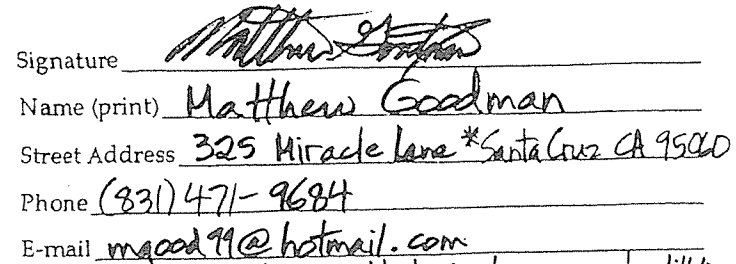 Signature Matthew Goodman
Name (print) Matthew Goodman
Street Address 325 Miracle Lane *Santa Cruz CA 95060
Phone (831) 471-9684
E-mail mgood99@hotmail.com